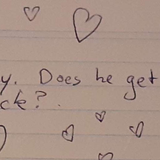 y. Does he get
ck?